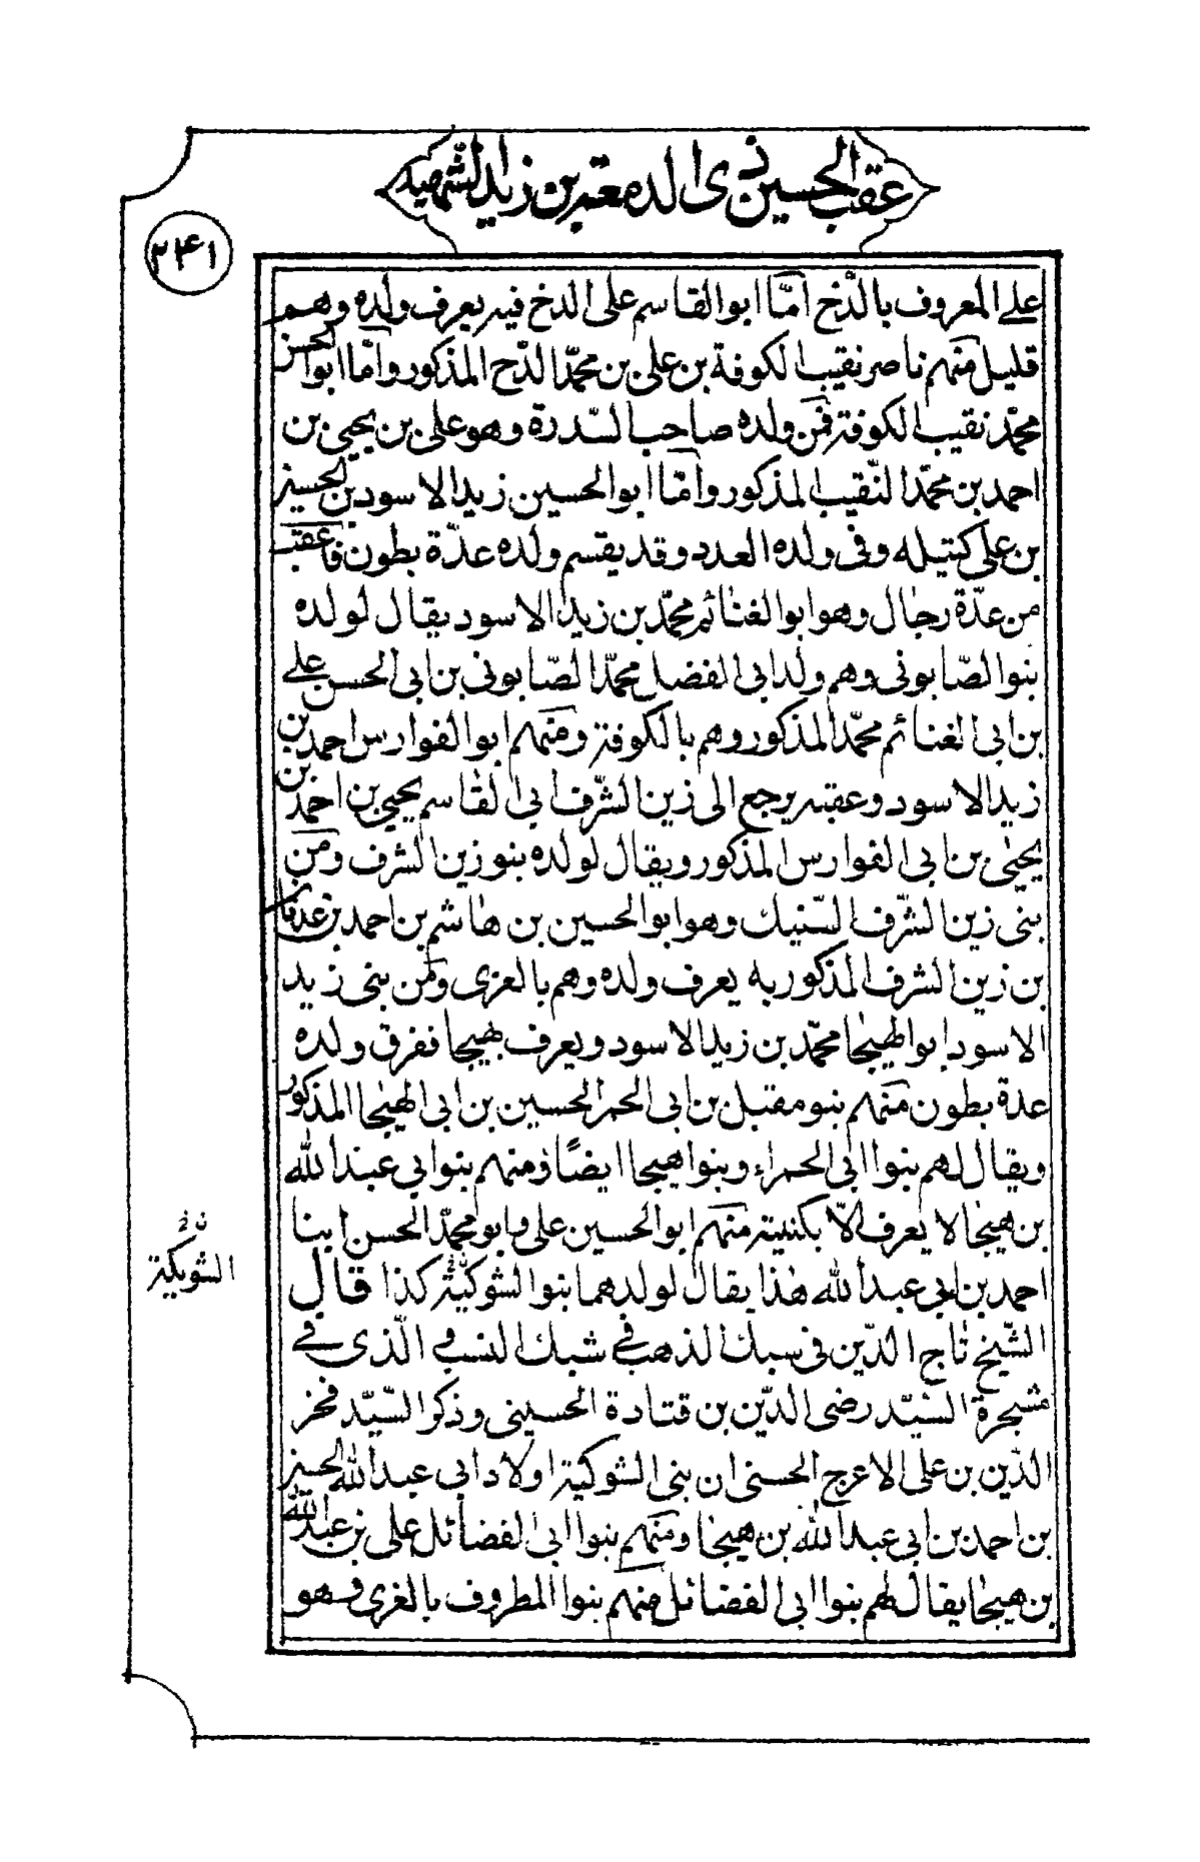 عقب الحسين ذى الدمعة بن زيد الشهيد
٢٤١
على المعروف بالدّخ امّا ابو القاسم على الدخ فيه يعرف ولده وهم
قليل منهم ناصر نقيب الكوفة بن على بن محمّد الدّح المذكور وامّا ابو الحسن
محمّد نقيب الكوفة فمن ولده صاحب السّدرة وهو على بن يحيى بن
احمد بن محمّد النّقيب المذكور وامّا ابو الحسين زيد الاسود بن الحسين
بن على كتيله وفى ولده العدد وقد يقسم ولده عدّة بطون فاعقب
من عدّة رجال وهو ابو الغنائم محمّد بن زيد الاسود يقال لولده
بنوا الصّابونى وهم ولد ابى الفضل محمّد الصّابونى بن ابى الحسن على
بن ابى الغنائم محمّد المذكور وهم بالكوفة ومنهم ابو الفوارس احمد بن
زيد الاسود وعقبه يرجع الى زين الشّرف ابى القاسم يحيى بن احمد بن
يحيى بن ابى الفوارس المذكور ويقال لولده بنو زين الشرف ومن
بنى زين الشّرف السّنيك وهو ابو الحسين بن هاشم بن احمد بن عدنان
بن زين الشرف المذكور به يعرف ولده وهم بالغرى ومن بنى زيد
الاسود ابو الهيجا محمّد بن زيد الاسود ويعرف بهيجا ففرق ولده
عدة بطون منهم بنو مقبل بن ابى الحمر الحسين بن ابى الهيجا المذكور
ويقال لهم بنوا ابى الحمراء وبنوا هيجا ايضًا ومنهم بنوا ابى عبد الله
بن هيجا لا يعرف الّا بكنيته منهم ابو الحسين على وابو محمّد الحسن ابنا
احمد بن ابى عبد الله هذا يقال لولدهما بنوا الشوكيّة كذا قال
ن خ
الشويكية
الشّيخ تاج الدّين فى سبك الذهب فى شبك النسب و الّذى فى
مشجرة السّيّد رضى الدّين بن قتادة الحسينى وذكر السّيّد فخر
الدّين بن على الاعرج الحسنى ان بنى الشوكية اولاد ابى عبد الله الحسين
بن احمد بن ابى عبد الله بن هيجا ومنهم بنوا ابى الفضائل على بن عبد الله
بن هيجا يقال لهم بنوا ابى الفضائل منهم بنوا المطروف بالغرى وهو